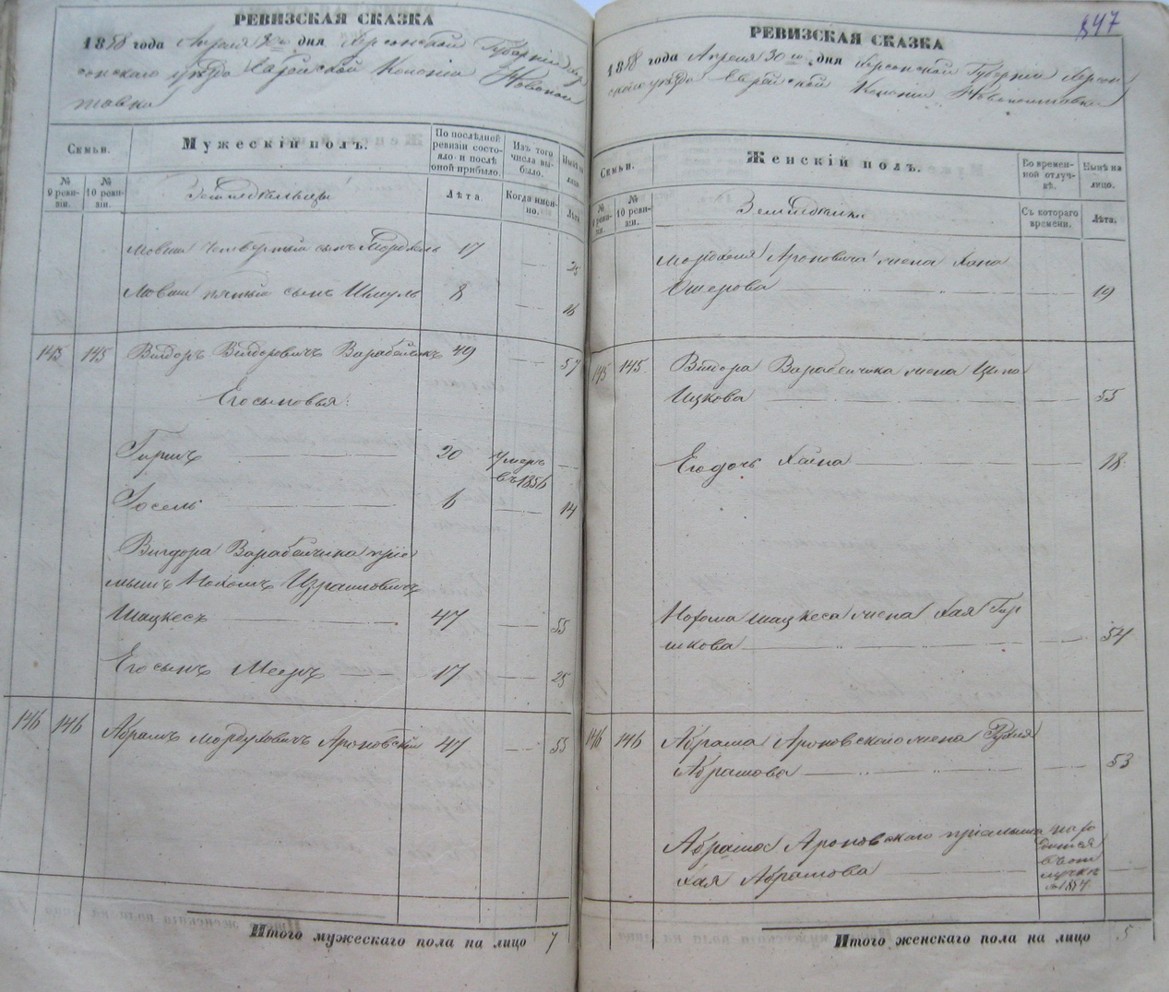 РЕВИЗСКАЯ СКАЗКА
1858 года Апреля 30 дня Херсонской Губернiи Хер
сонскаго уѣзда Еврейской Колонiи Новопол
тавки
Семьи.
Мужескiй полъ.
По послѣдней ревизiи состояло и послѣ оной прибыло.
Изъ того числа выбыло.
Нынѣ на лицо.
№ 9 ревизiи.
№ 10 ревизiи.
Земледѣльцы
Лѣта
Когда именно.
Лѣта
Мовши четвертый сынъ Мордхель 17 25
Мовши пятый сынъ Шмуль 8 16
145 145 Вигдоръ Вигдоровичъ Варабейчикъ 49 57
Его сыновья:
Гиршъ 20 умеръ въ 1856
Iосель 6 14
Вигдора Варабейчика прiе
мышъ Нохомъ Израилевичъ
Шацкесъ 47 55
Его сынъ Мееръ 17 25
146 146 Абрамъ Мордуховичъ Ароновскiй 47 55
Итого мужескаго пола на лицо 7
847
РЕВИЗСКАЯ СКАЗКА
1858 года Апреля 30 дня Херсонской Губернiи Херсон
скаго уѣзда Еврейской Колонiи Новополтавки
Семьи.
Женскiй полъ.
Во временной отлучкѣ.
Нынѣ на лицо.
№ 9 ревизiи.
№ 10 ревизiи.
Земледѣлки
Съ котораго времени.
Лѣта.
жена Хана
Ошерова 19
145 145 Вигдора Варабейчика жена Ципа
Ицкова 55
Его дочь Хайна 18
Нохома Шацкеса жена Хая Гир
шкова 54
146 146 Абрама Ароновскаго жена
Абрамова 53
Абрама Ароновскаго прiемыш
Хая Абрамова находится въ отлучкѣ 1857
Итого женскаго пола на лицо 5